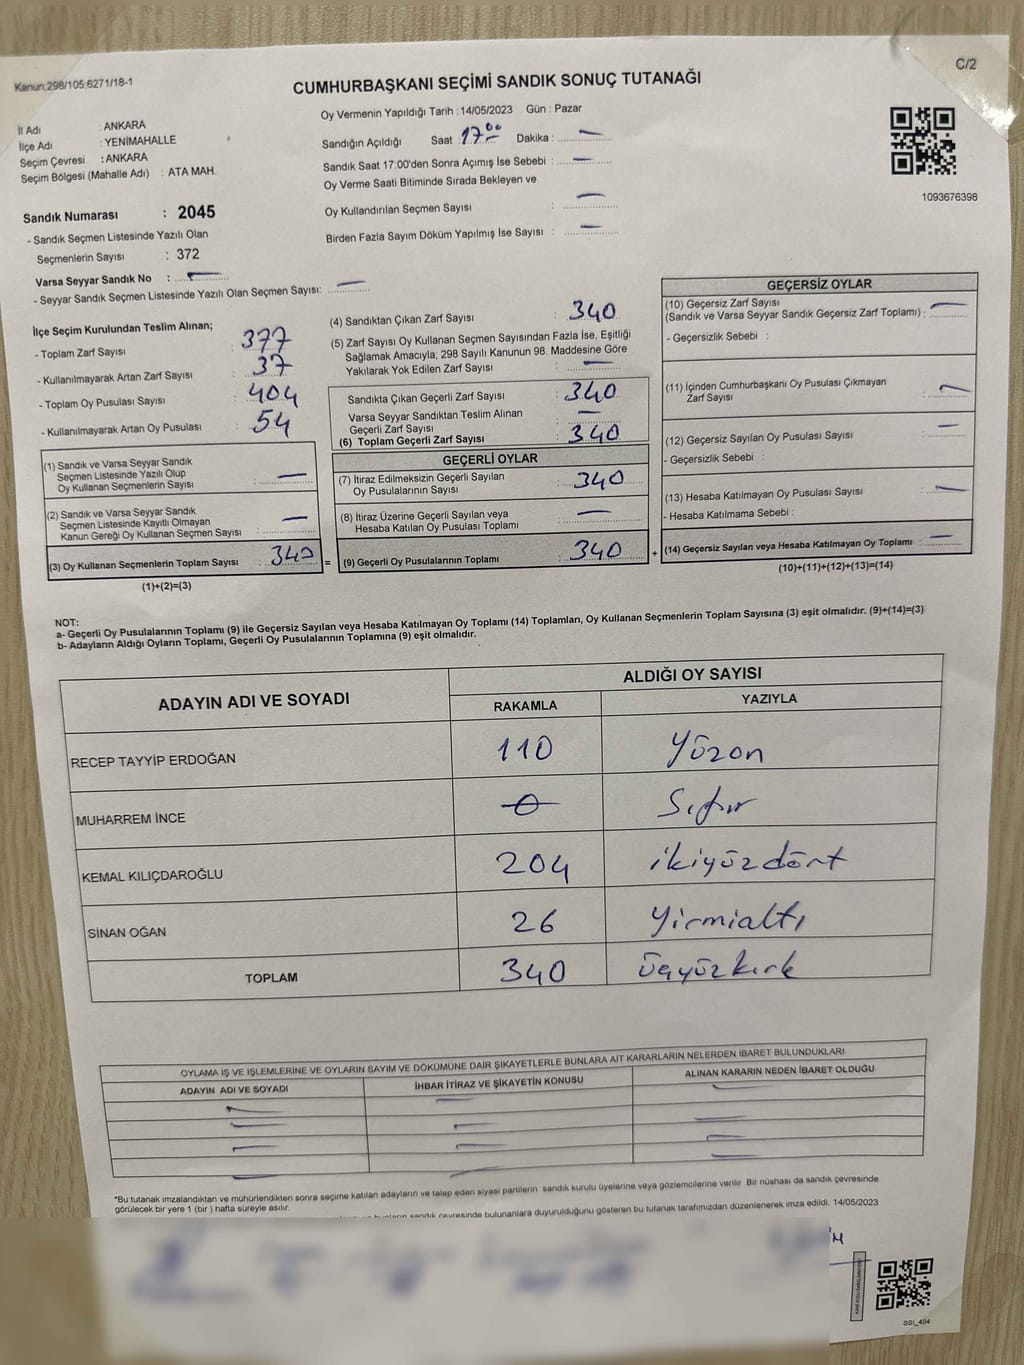 Kanun:298/105;6271/18-1
C/2
CUMHURBAŞKANI SEÇİMİ SANDIK SONUÇ TUTANAĞI
İl Adı : ANKARA
İlçe Adı : YENİMAHALLE
Seçim Çevresi : ANKARA
Seçim Bölgesi (Mahalle Adı) : ATA MAH.
Sandık Numarası : 2045
- Sandık Seçmen Listesinde Yazılı Olan
Seçmenlerin Sayısı : 372
Varsa Seyyar Sandık No :
- Seyyar Sandık Seçmen Listesinde Yazılı Olan Seçmen Sayısı:
Oy Vermenin Yapıldığı Tarih :14/05/2023 Gün : Pazar
Sandığın Açıldığı Saat 17.00 Dakika :
Sandık Saat 17:00'den Sonra Açımış İse Sebebi :
Oy Verme Saati Bitiminde Sırada Bekleyen ve
Oy Kullandırılan Seçmen Sayısı :
Birden Fazla Sayım Döküm Yapılmış İse Sayısı :
1093676398
İlçe Seçim Kurulundan Teslim Alınan;
- Toplam Zarf Sayısı : 377
- Kullanılmayarak Artan Zarf Sayısı : 37
- Toplam Oy Pusulası Sayısı : 404
- Kullanılmayarak Artan Oy Pusulası : 54
(1) Sandık ve Varsa Seyyar Sandık
Seçmen Listesinde Yazılı Olup
Oy Kullanan Seçmenlerin Sayısı :
(2) Sandık ve Varsa Seyyar Sandık
Seçmen Listesinde Kayıtlı Olmayan
Kanun Gereği Oy Kullanan Seçmen Sayısı :
(3) Oy Kullanan Seçmenlerin Toplam Sayısı : 340 =
(1)+(2)=(3)
(4) Sandıktan Çıkan Zarf Sayısı : 340
(5) Zarf Sayısı Oy Kullanan Seçmen Sayısından Fazla İse, Eşitliği
Sağlamak Amacıyla; 298 Sayılı Kanunun 98. Maddesine Göre
Yakılarak Yok Edilen Zarf Sayısı :
Sandıkta Çıkan Geçerli Zarf Sayısı : 340
Varsa Seyyar Sandıktan Teslim Alınan
Geçerli Zarf Sayısı :
(6) Toplam Geçerli Zarf Sayısı : 340
GEÇERLİ OYLAR
(7) İtiraz Edilmeksizin Geçerli Sayılan
Oy Pusulalarının Sayısı : 340
(8) İtiraz Üzerine Geçerli Sayılan veya
Hesaba Katılan Oy Pusulası Toplamı :
(9) Geçerli Oy Pusulalarının Toplamı : 340 +
GEÇERSİZ OYLAR
(10) Geçersiz Zarf Sayısı
(Sandık ve Varsa Seyyar Sandık Geçersiz Zarf Toplamı) :
- Geçersizlik Sebebi :
(11) İçinden Cumhurbaşkanı Oy Pusulası Çıkmayan
Zarf Sayısı :
(12) Geçersiz Sayılan Oy Pusulası Sayısı :
- Geçersizlik Sebebi :
(13) Hesaba Katılmayan Oy Pusulası Sayısı :
- Hesaba Katılmama Sebebi :
(14) Geçersiz Sayılan veya Hesaba Katılmayan Oy Toplamı :
(10)+(11)+(12)+(13)=(14)
NOT:
a- Geçerli Oy Pusulalarının Toplamı (9) ile Geçersiz Sayılan veya Hesaba Katılmayan Oy Toplamı (14) Toplamları, Oy Kullanan Seçmenlerin Toplam Sayısına (3) eşit olmalıdır. (9)+(14)=(3)
b- Adayların Aldığı Oyların Toplamı, Geçerli Oy Pusulalarının Toplamına (9) eşit olmalıdır.
ADAYIN ADI VE SOYADI
ALDIĞI OY SAYISI
RAKAMLA YAZIYLA
RECEP TAYYİP ERDOĞAN 110 Yüzon
MUHARREM İNCE 0 Sıfır
KEMAL KILIÇDAROĞLU 204 ikiyüzdört
SİNAN OĞAN 26 Yirmialtı
TOPLAM 340 üçyüzkırk
OYLAMA İŞ VE İŞLEMLERİNE VE OYLARIN SAYIM VE DÖKÜMÜNE DAİR ŞİKAYETLERLE BUNLARA AİT KARARLARIN NELERDEN İBARET BULUNDUKLARI
ADAYIN ADI VE SOYADI İHBAR İTİRAZ VE ŞİKAYETİN KONUSU ALINAN KARARIN NEDEN İBARET OLDUĞU
*Bu tutanak imzalandıktan ve mühürlendikten sonra seçime katılan adayların ve talep eden siyasi partilerin sandık kurulu üyelerine veya gözlemcilerine verilir. Bir nüshası da sandık çevresinde
görülecek bir yere 1 (bir ) hafta süreyle asılır.
sandık çevresinde bulunanlara duyurulduğunu gösteren bu tutanak tarafımızdan düzenlenerek imza edildi. 14/05/2023
SSI_404